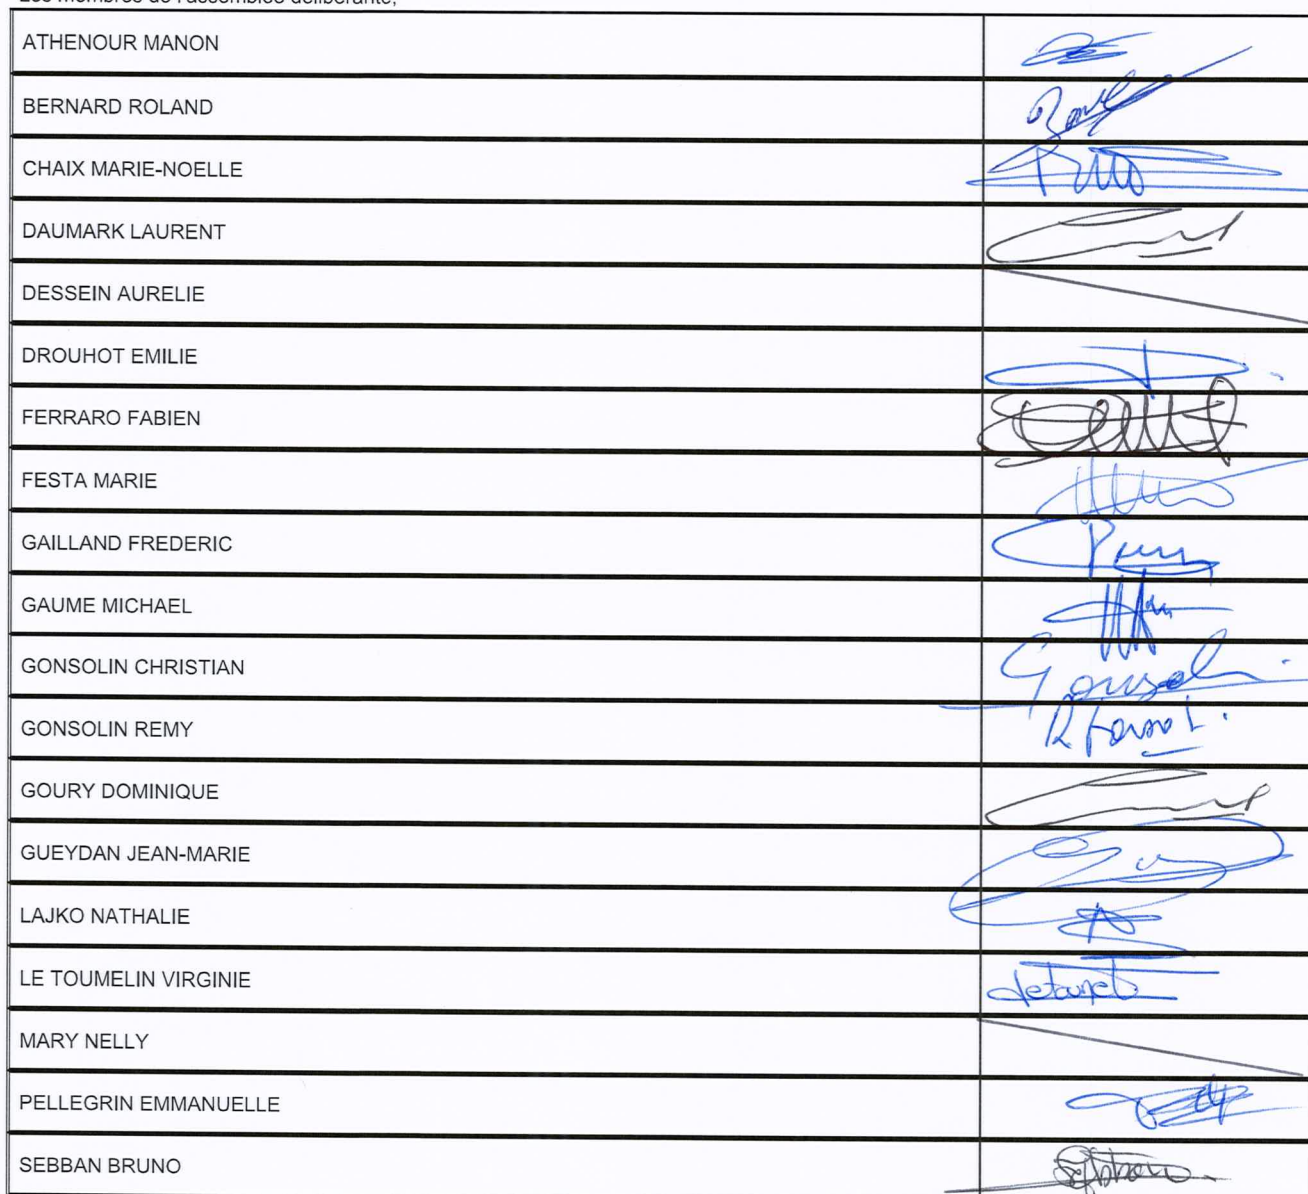 Les membres de l'assemblée délibérante,
ATHENOUR MANON
BERNARD ROLAND
CHAIX MARIE-NOELLE
DAUMARK LAURENT
DESSEIN AURELIE
DROUHOT EMILIE
FERRARO FABIEN
FESTA MARIE
GAILLAND FREDERIC
GAUME MICHAEL
GONSOLIN CHRISTIAN
GONSOLIN REMY
GOURY DOMINIQUE
GUEYDAN JEAN-MARIE
LAJKO NATHALIE
LE TOUMELIN VIRGINIE
MARY NELLY
PELLEGRIN EMMANUELLE
SEBBAN BRUNO